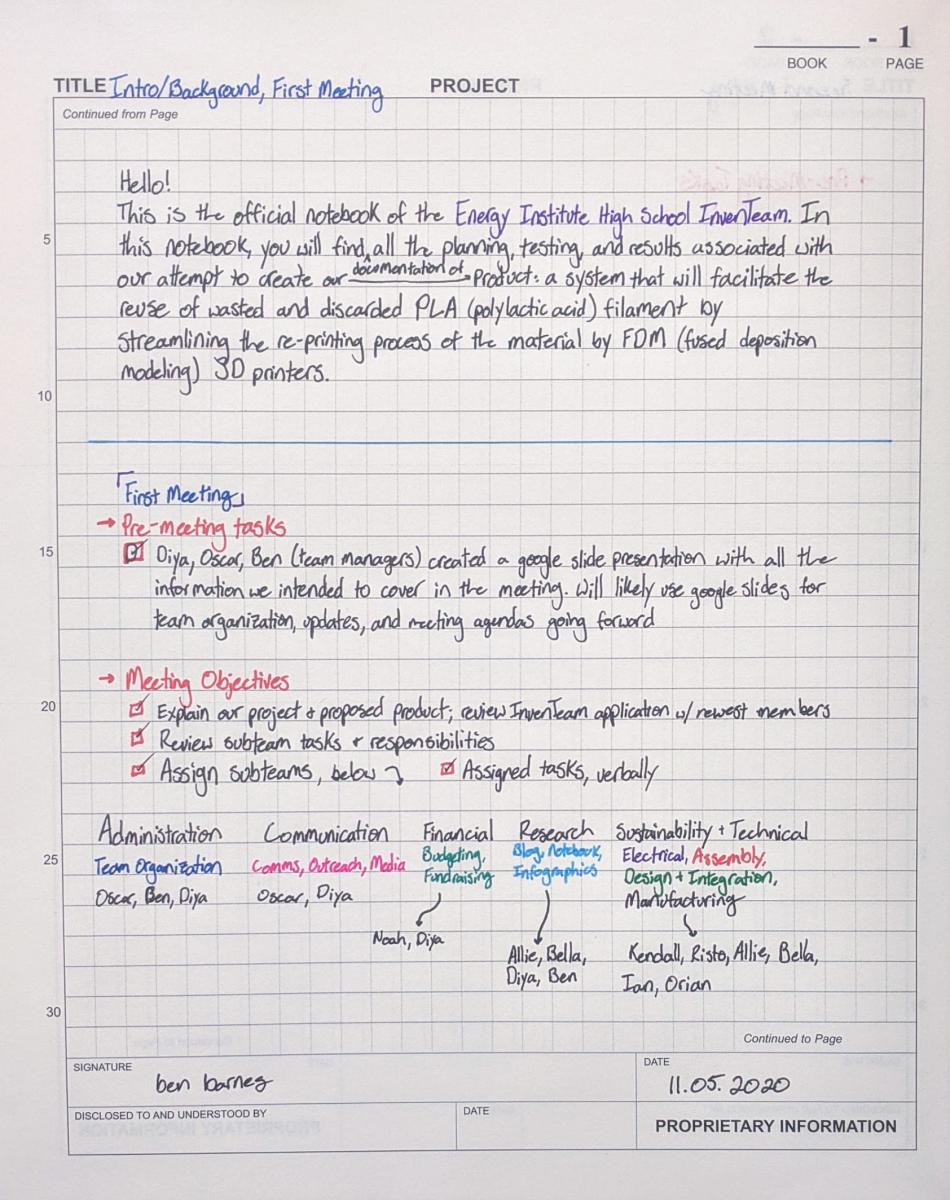 - 1
BOOK PAGE
TITLE Intro/Background, First Meeting PROJECT
Continued from Page
Hello!
This is the official notebook of the Energy Institute High School InvenTeam. In
5
this notebook, you will find, all the planning, testing, and results associated with
documentation of
our attempt to create our Product: a system that will facilitate the
reuse of wasted and discarded PLA (polylactic acid) filament by
streamlining the re-printing process of the material by FDM (fused deposition
modeling) 3D printers.
10
「First Meeting」
→ Pre-meeting tasks
15
☑ Diya, Oscar, Ben (team managers) created a google slide presentation with all the
information we intended to cover in the meeting. Will likely use google slides for
team organization, updates, and meeting agendas going forward
→ Meeting Objectives
20
☑ Explain our project + proposed product; review InvenTeam application w/ newest members
☑ Review subteam tasks + responsibilities
☑ Assign subteams, below ↴ ☑ Assigned tasks, verbally
Administration Communication Financial Research Sustainability + Technical
25
Team Organization Comms, Outreach, Media Budgeting, Blog, Notebook, Electrical, Assembly,
Fundraising Infographics Design + Integration,
Oscar, Ben, Diya Oscar, Diya Manufacturing
Noah, Diya
Allie, Bella, Kendall, Risto, Allie, Bella,
Diya, Ben Ian, Orian
30
Continued to Page
SIGNATURE DATE
ben barnes 11.05.2020
DISCLOSED TO AND UNDERSTOOD BY DATE
PROPRIETARY INFORMATION